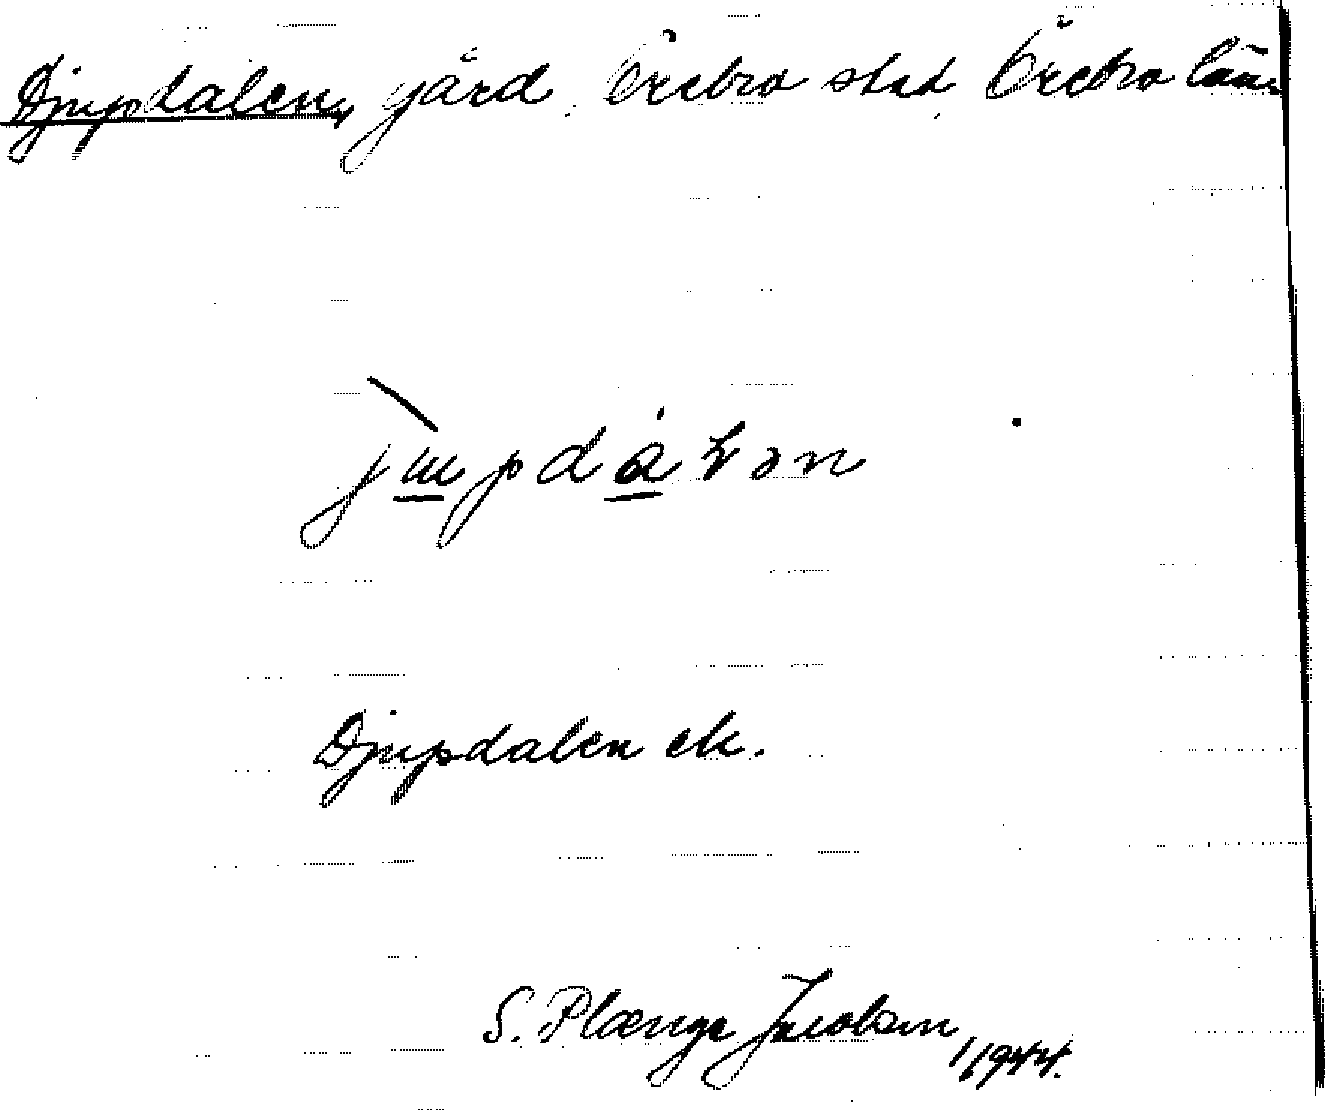 Djupdalen, gård, Örebro stad, Örebro län.
Djupdalen ek.
S. Plænge Jacobson 1944.